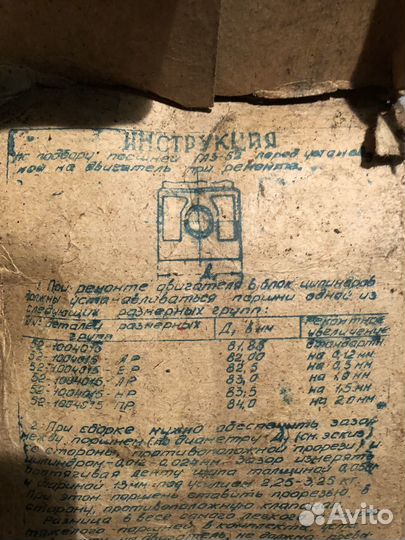 ИНСТРУКЦИЯ
по подбору поршней ГАЗ-52 перед установ
кой на двигатель при ремонте.
Д
1. При ремонте двигателя в блок цилиндров
должны устанавливаться поршни одной из
следующих размерных групп:
NN деталей размерных групп Д, в мм Ремонтное увеличение
52-1004015 81,88 стандартн
52-1004015 - АР 82,00 на 0,12 мм
52-1004015 - ЕР 82,5 на 0,5 мм
52-1004015 - ЛР 83,0 на 1,0 мм
52-1004015 - НР 83,5 на 1,5 мм
52-1004015 ПР, 84,0 на 2,0 мм
2. При сборке нужно обеспечить зазор
между поршнем (по диаметру Д) (см. эскиз)
со стороны, противоположной прорези, и
цилиндром - 0,012 - 0,024 мм. Зазор измерять
протягивая ленту щупа толщиной 0,05
и шириной 13 мм. под усилием 2,25-3,25 кг.
При этом поршень ставить прорезью в
сторону, противоположную клапа
Разница в весе самого легкого и
тяжелого поршней, в комплекте
двигатель, не должна превы
Avito